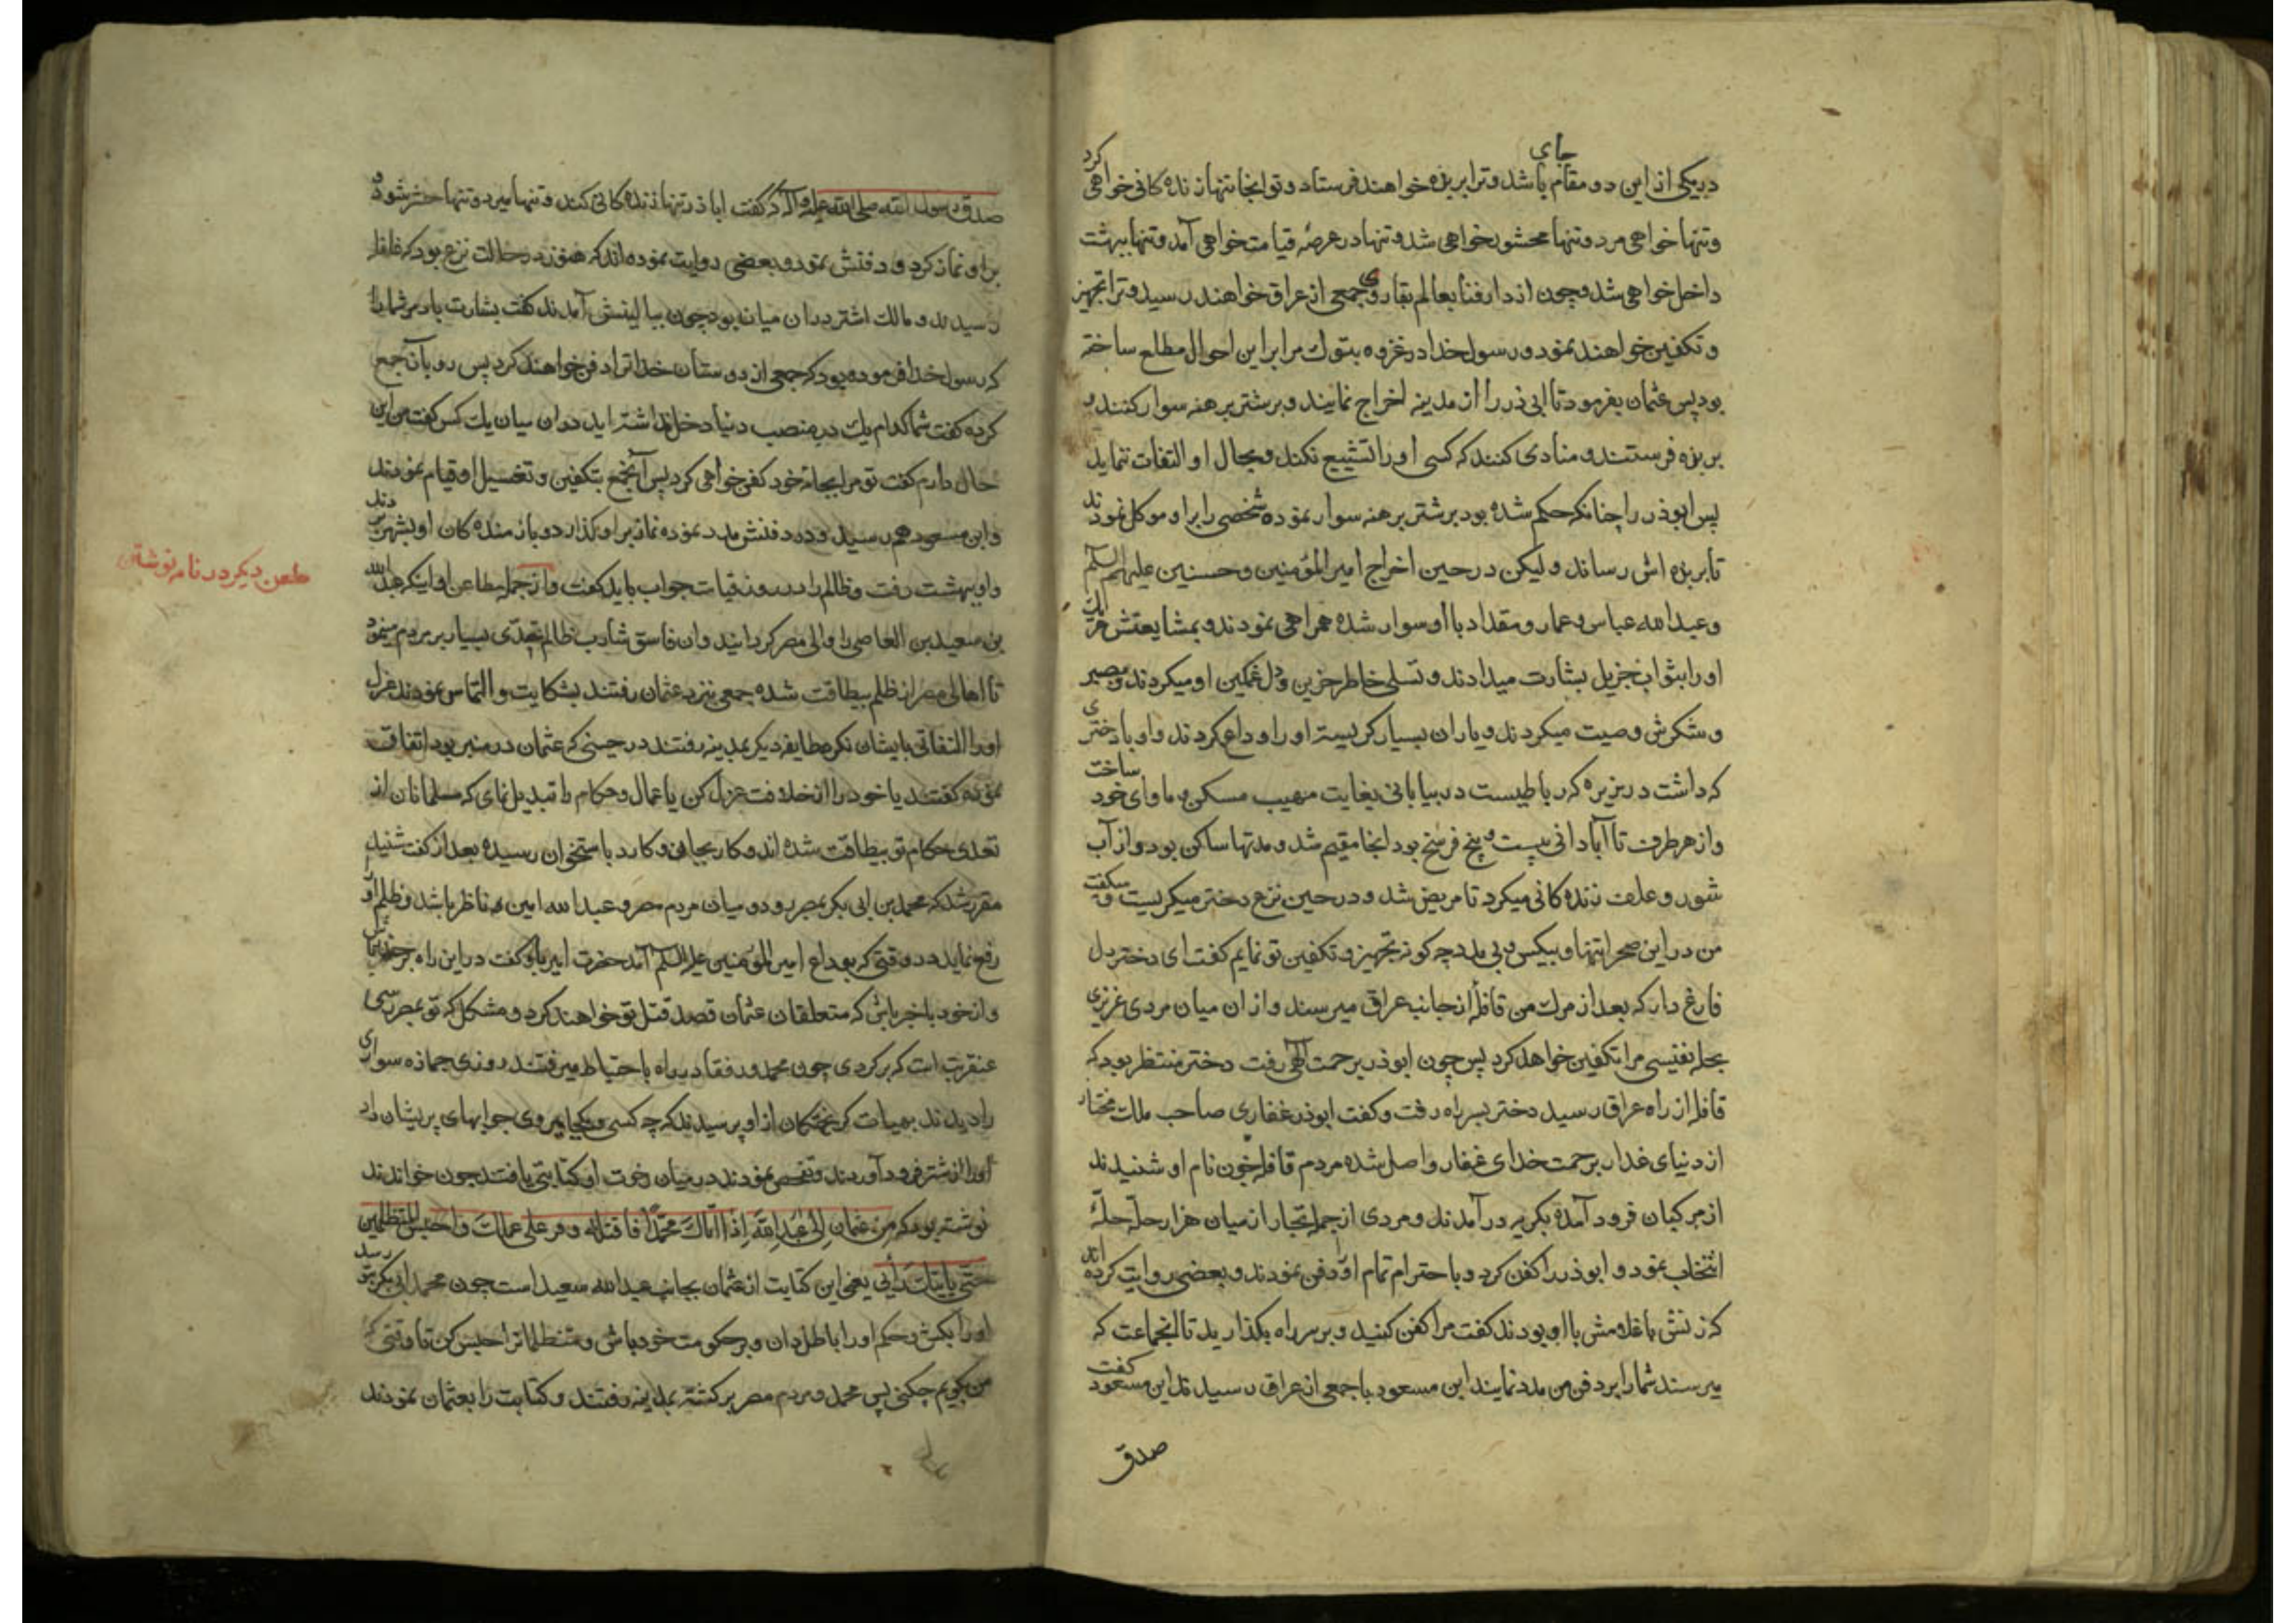 در یکی ازین دو مقام جای باشد و ترا بربزه خواهند فرستاد و تو آنجا تنها زنده کانی خواهی کرد
و تنها خواهی مرد و تنها محشور خواهی شد و تنها در عرصه قیامت خواهی آمد و تنها ببهشت
داخل خواهی شد و چون از دار فنا بعالم بقا روی جمعی از عراق خواهند رسید و ترا تجهیز
و تکفین خواهند نمود و رسول خدا در غزوه بتوک مرا بر این احوال مطلع ساخته
بود پس عثمان بفرمود تا ابی ذر را از مدینه اخراج نمایند و بر شتر برهنه سوار کنند و
بربزه فرستند و منادی کنند که کسی او را تشییع نکند و بحال او التفات ننماید
پس ابوذر را چنانکه حکم شده بود بر شتر برهنه سوار نموده شخصی را بر او موکل نمودند
تا بربزه اش رساند و لیکن در حین اخراج امیر المؤمنین و حسنین علیهم السلام
و عبدالله عباس و عمار و مقداد با او سوار شده همراهی نمودند و بمشایعتش
او را بثواب جزیل بشارت میدادند و تسلی خاطر حزین و دل غمکین او میکردند و بصبر
و شکرش وصیت میکردند و یاران بسیار کریسته او را وداع کردند و او با دختری
که داشت در بزیره که رباطیست در بیابانی بغایت مهیب مسکن و ماوای خود ساخت
و از هر طرف تا آبادانی بیست و پنج فرسخ بود آنجا مقیم شد و مدتها ساکن بود و از آب
شور و علف زنده کانی میکرد تا مریض شد و در حین نزع دختر میکریست و میکفت
من در این صحرا تنها و بیکس و بی مدد چه کونه تجهیز و تکفین تو نمایم کفت ای دختر دل
فارغ دار که بعد از مرک من قافله از جانب عراق میرسند و از ان میان مردی عزیزی
بحله نفیسی مرا تکفین خواهد کرد پس چون ابوذر برحمت الهی رفت دختر منتظر بود که
قافله از راه عراق رسید دختر بسر راه رفت و کفت ابوذر غفاری صاحب ملک مختار
از دنیای غدار برحمت خدای غفار واصل شده مردم قافله چون نام او شنیدند
از مرکبان فرود آمده بکریه در آمدند و مردی از جمله تجار از میان هزار حله حلهٔ
انتخاب نمود و ابوذر را کفن کرد و با احترام تمام او را دفن نمودند و بعضی روایت کرده اند
که زنش با غلامش با او بودند کفت مرا کفن کنید و بر سر راه بکذارید تا انجماعت که
میرسند شما را بر دفن من مدد نمایند ابن مسعود با جمعی از عراق رسیدند ابن مسعود کفت
صدق
صدق رسول الله صلی الله علیه وآله که کفت اباذر تنها زنده کانی کند و تنها میرد و تنها حشر شود و
بر او نماز کرد و دفنش نمود و بعضی روایت نموده اند که هنوز در حالت نزع بود که قافله
رسیدند و مالک اشتر در ان میان بود چون ببالینش آمدند کفت بشارت باد مر شما را
که رسول خدا فرموده بود که جمعی از دوستان خدا ترا دفن خواهند کرد پس رو بآنجمع
کرده کفت شما کدام یک در منصب دنیا دخل نداشته اید در ان میان یک کس کفت من این
حال دارم کفت تو مرا بجامه خود کفن خواهی کرد پس آنجمع بتکفین و تغسیل او قیام نمودند
و ابن مسعود هم رسید و در دفنش مدد نموده نماز بر او کذارد و بازمنده کان او بشهر بردند
و او ببهشت رفت و ظالم را در روز قیامت جواب باید کفت و از جمله مطاعن او اینکه عبدالله
طعن دیکر در نامه نوشتن
بن سعید بن العاصی را والی مصر کردانید و ان فاسق شارب ظالم تعدی بسیار بر مردم مینمود
تا اهالی مصر از ظلم بیطاقت شده جمعی بنزد عثمان رفتند بشکایت و التماس نمودند عزل
او را التفاتی بایشان نکرد طایفه دیکر بمدینه رفتند در حینی که عثمان در منبر بود اتفاق
نموده کفتند یا خود را از خلافت عزل کن یا عمال و حکام را تبدیل نمای که مسلمانان از
تعدی حکام تو بیطاقت شده اند و کار بجان و کارد باستخوان رسیده بعد از کفت شنید
مقرر شد که محمد بن ابی بکر بمصر رود و میان مردم مصر و عبدالله امین و ناظر باشد و ظلم او را
رفع نماید در وقتی که بوداع امیر المؤمنین علیه السلام آمد حضرت امیر باو کفت در این راه بر حذر باش
و از خود با خبر باش که متعلقان عثمان قصد قتل تو خواهند کرد و مشکل که تو بمصر رسی
عنقریب است که برکردی چون محمد و رفقا در راه با احتیاط میرفتند روزی جمازه سواری
را دیدند بهیات کریختکان از او پرسیدند که چه کسی و بکجا میروی جوابهای پریشان داد
او را از شتر فرود آوردند و تفحص نمودند در میان رخوت او کتابتی یافتند چون خواندند
نوشته بود که من عثمان الی عبد الله اذا اتاک محمداً فاقتله و قر علی عملک و احبس المتظلمین
حتی یاتیک رأیی یعنی این کتابت از عثمان بجانب عبدالله سعید است چون محمد ابی بکر بتو رسد
او را بکش و حکم او را باطل دان و بر حکومت خود باش و متظلمانرا حبس کن تا وقتی که
من بکویم چکنی پس محمد و مردم مصر برکشته بمدینه رفتند و کتابت را بعثمان نمودند